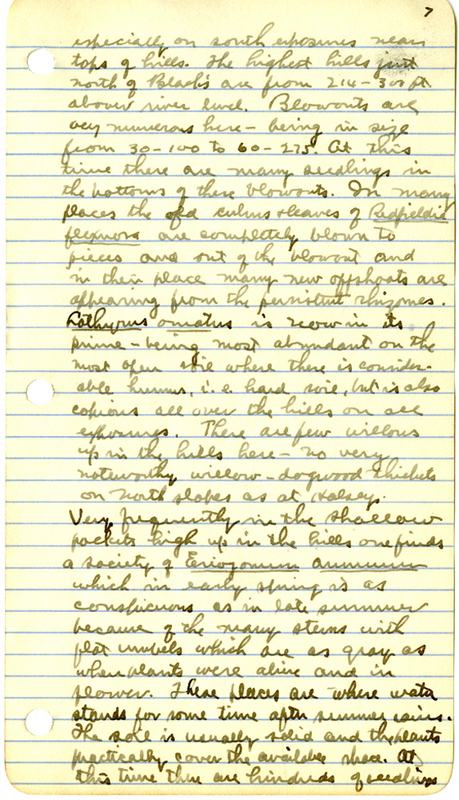 7
especially on south exposures near
tops of hills. The highest hills just
north of Black's are from 214-300 ft
above river level. Blowouts are
very numerous here - being in size
from 30-100 to 60-275. At this
time there are many seedlings in
the bottoms of these blowouts. In many
places the old culms & leaves of Redfieldia
flexuosa are completely blown to
pieces and out of the blowout and
in their place many new offshoots are
appearing from the persistent rhizomes.
Lathyrus ornatus is now in its
prime - being most abundant on the
most open soil where there is consider-
able humus, i.e. hard soil, but is also
copious all over the hills on all
exposures. There are few willows
up in the hills here - no very
noteworthy willow-dogwood thickets
on north slopes as at Halsey.
Very frequently in the shallow
pockets high up in the hills one finds
a society of Eriogonum annuum
which in early spring is as
conspicuous as in late summer
because of the many stems with
flat umbels which are as gray as
when plants were alive and in
flower. These places are where water
stands for some time after summer rains.
The soil is usually solid and the plants
practically cover the available space. At
this time there are hundreds of seedlings